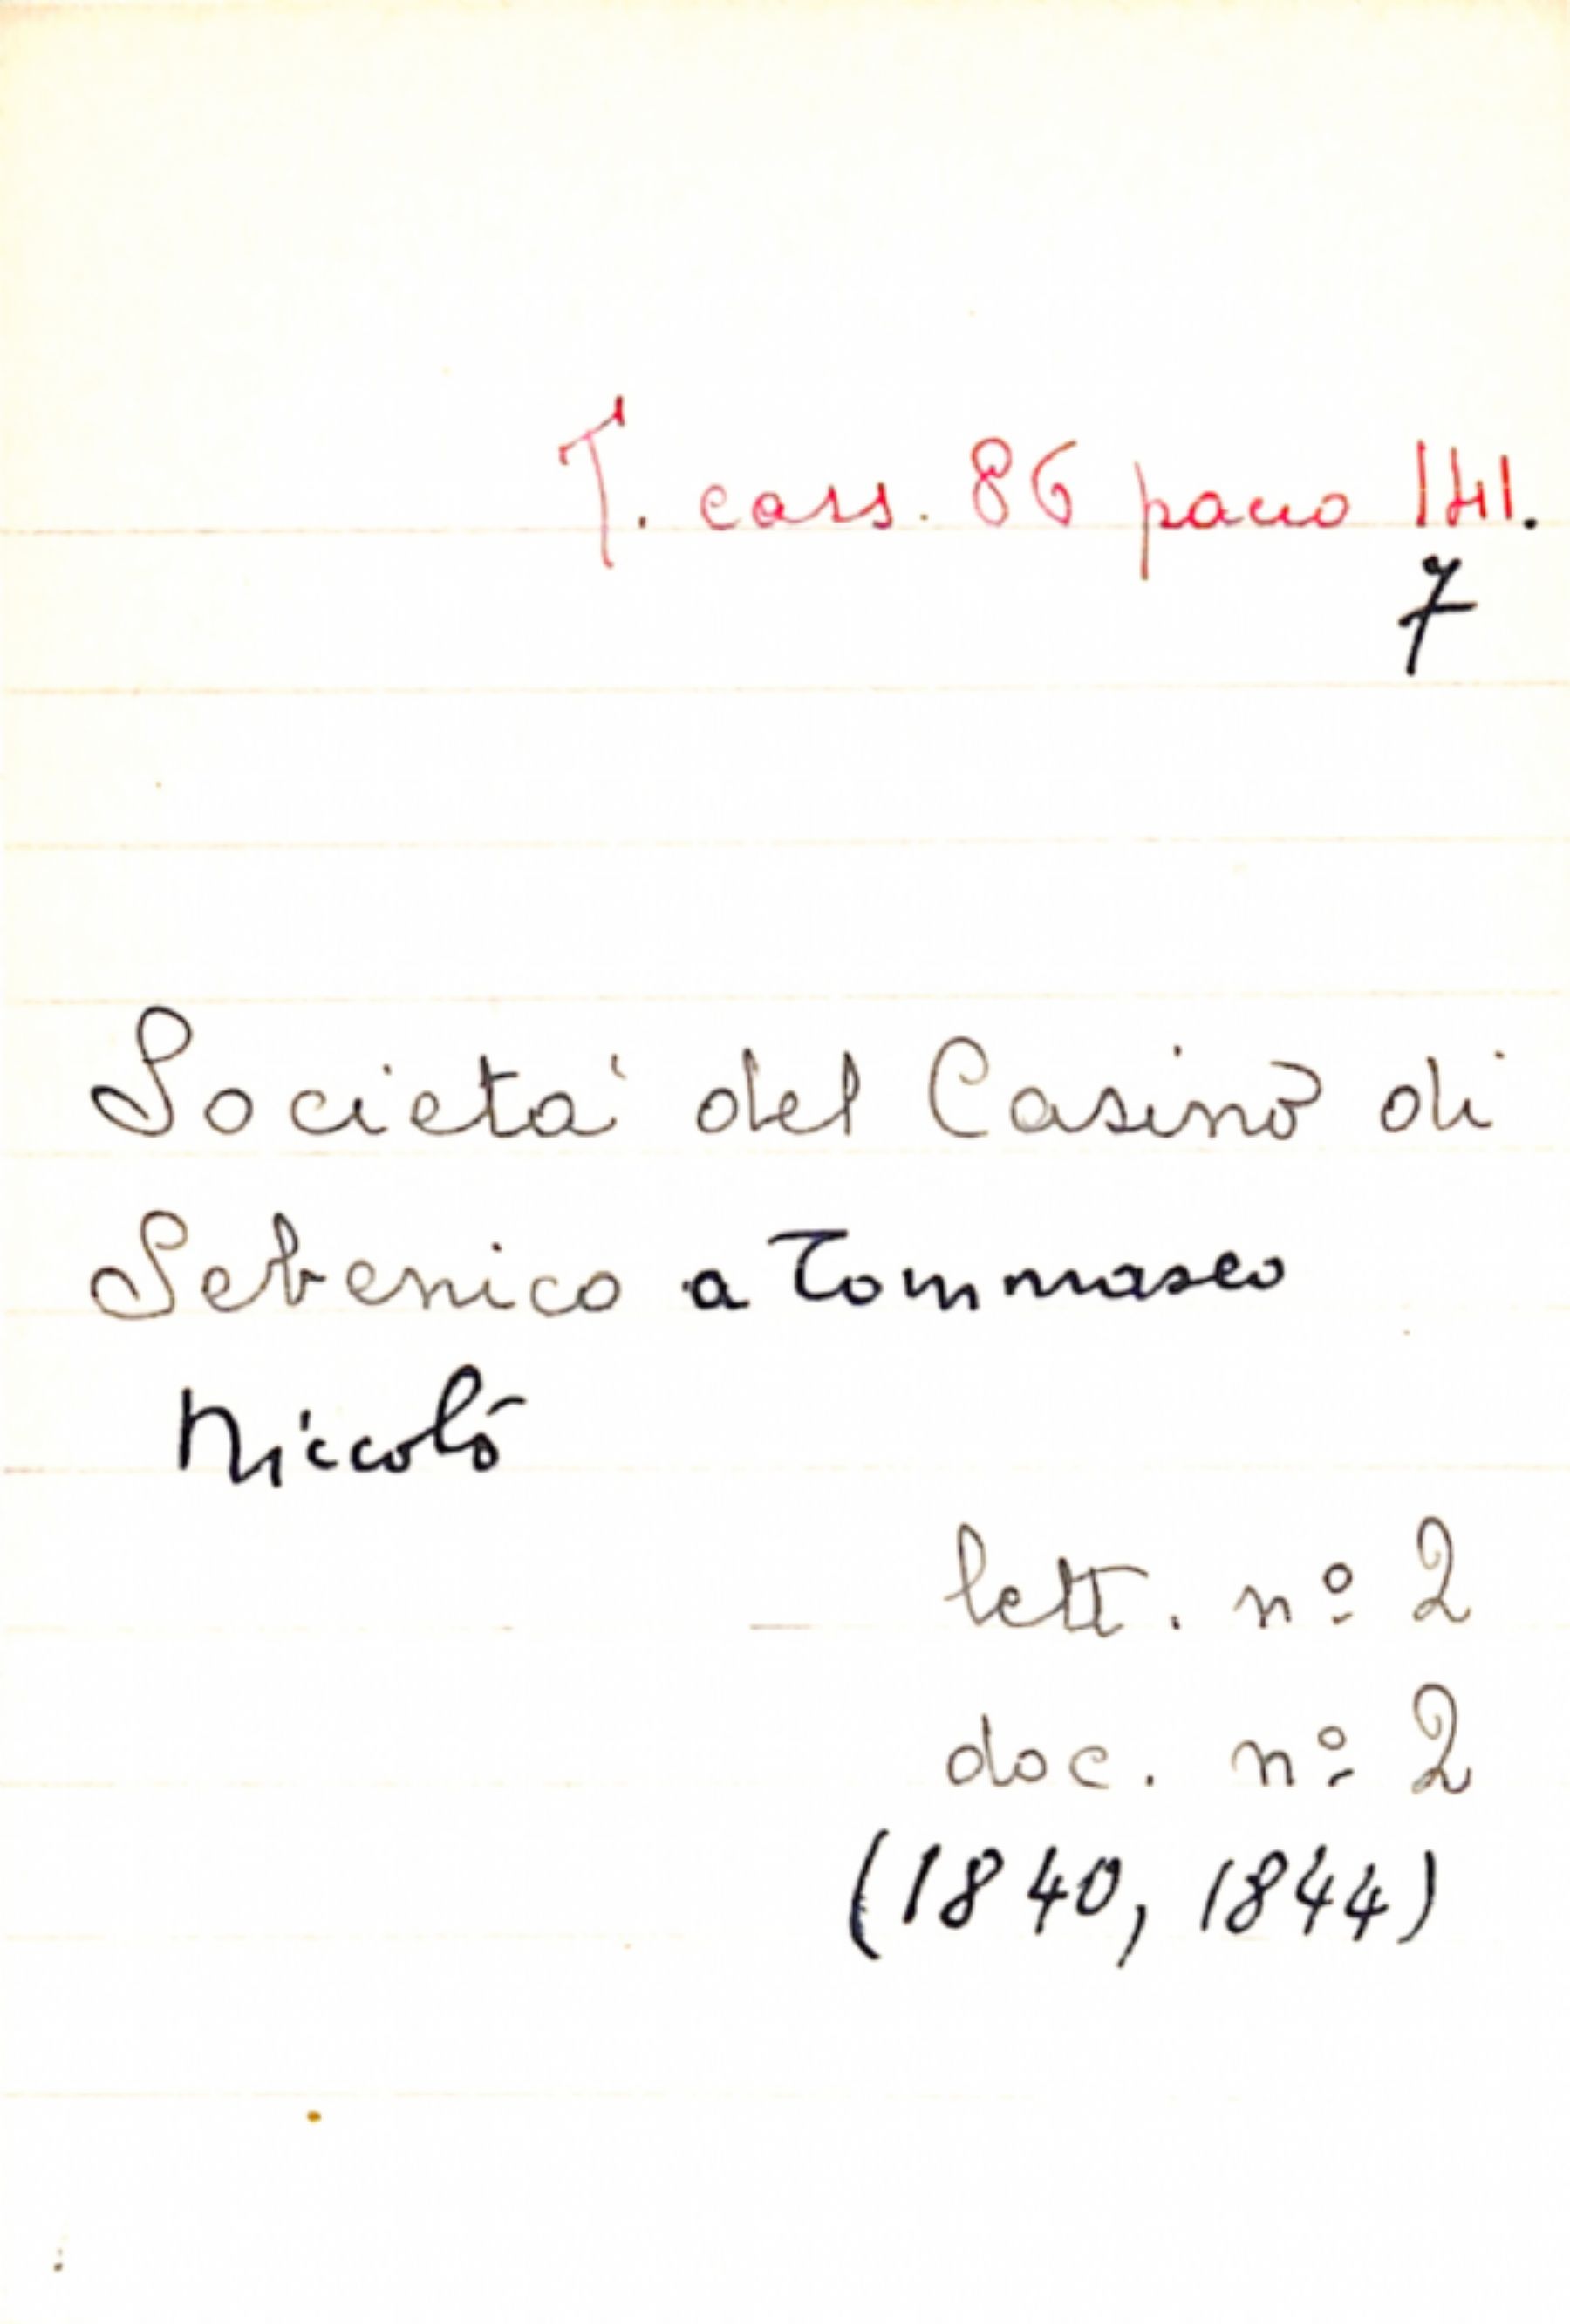 T. cass. 86 pacco 141.
7
Società del Casinò di
Sebenico a Tommaseo
Niccolò
lett. nº 2
doc. nº 2
(1840, 1844)